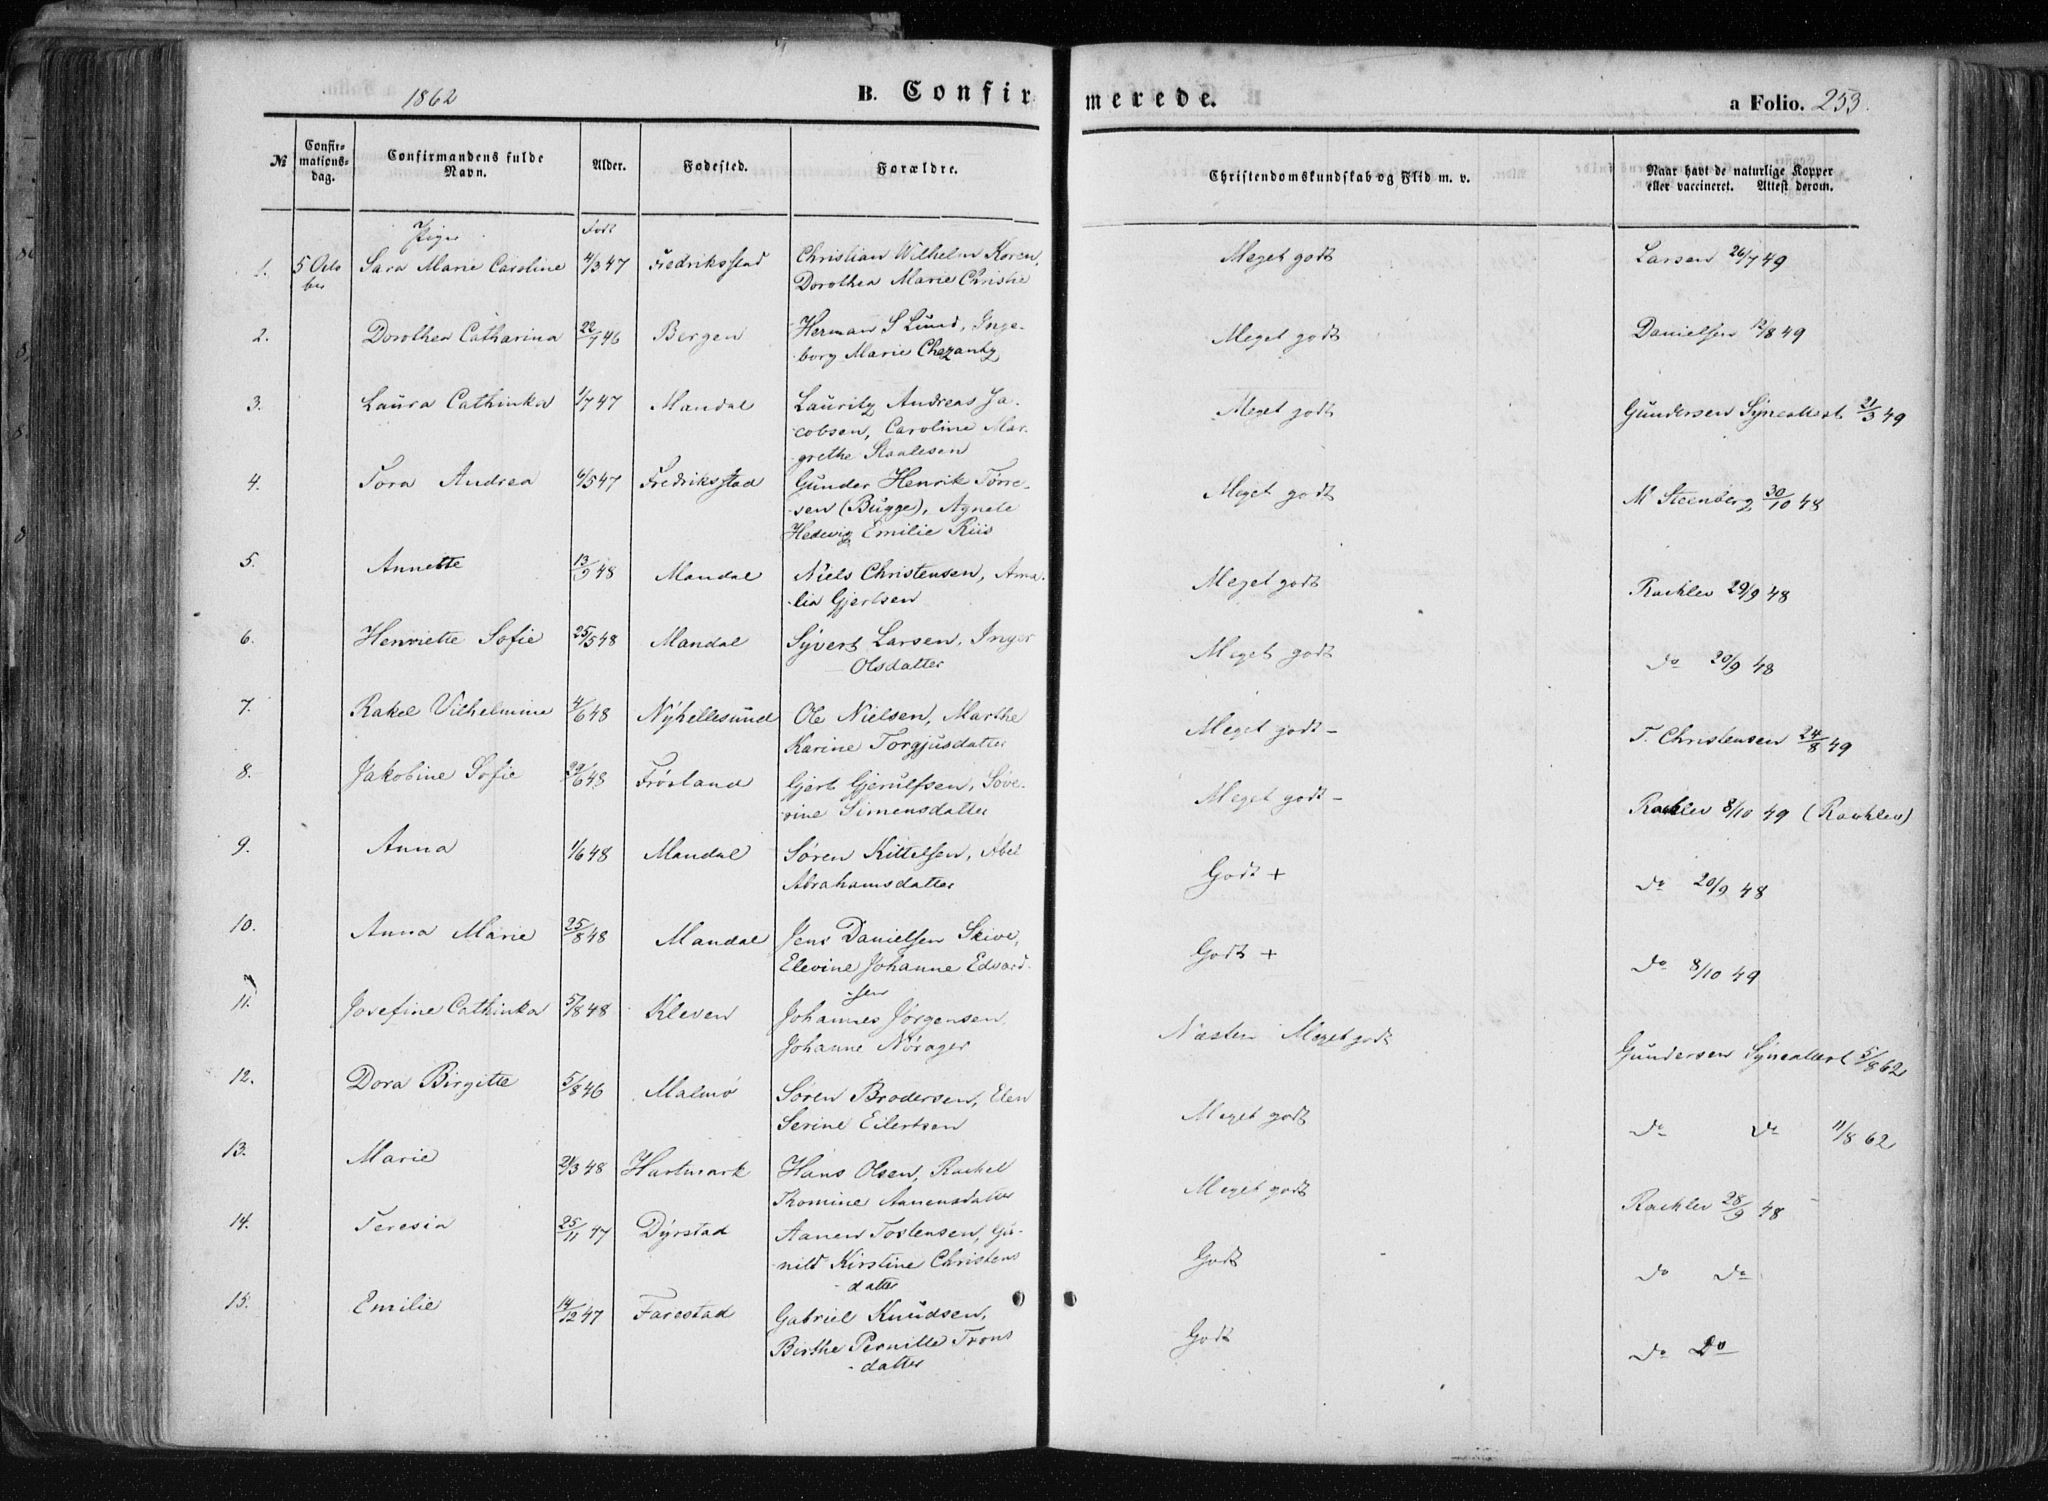 1862 B. Confirmerede. a Folio. 253.
№ Confirmationsdag. Confirmandens fulde Navn. Alder. Fødested. Forældre. Christendomskundskab og Flid m. v. Naar havt de naturlige Kopper eller vaccineret. Attest derom.
Piger Født
1. 5 Octo Sara Marie Caroline 4/3 47 Fredriksstad Christian Wilhelm Koren, Meget godt Larsen 26/7 49
ber Dorothea Marie Christie
2. Dorothea Catharina 22/7 46 Bergen Herman S Lund, Inge- Meget godt Danielsen 12/8 49
borg Marie Chezanby
3. Laura Cathinka 1/7 47 Mandal Lauritz Andreas Ja- Meget godt Gundersen Synealtest 21/3 49
cobsen, Caroline Mar-
grethe Staalesen
4. Tora Andrea 6/5 47 Fredriksstad Gunder Henrik Tørre- Meget godt M Steenberg 30/10 48
sen (Bugge), Agnete
Hedevig Emilie Riis
5. Annette 13/9 48 Mandal Niels Christensen, Ama- Meget godt Rachlev 29/9 48
lia Gjertsen
6. Henriette Sofie 25/5 48 Mandal Syvert Larsen, Inger Meget godt Do 20/9 48
Olsdatter
7. Rakel Vilhelmine 4/6 48 Nyhellesund Ole Nielsen, Marthe Meget godt - T. Christensen 24/8 49
Karine Torgjusdatter
8. Jakobine Sofie 29/6 48 Frøsland Gjert Gjerulfsen, Søve- Meget godt - Rachlev 8/10 49 (Rachlev)
rine Simensdatter
9. Anna 1/6 48 Mandal Søren Kittelsen, Abel Godt + Do 20/9 48
Abrahamsdatter
10. Anna Marie 25/8 48 Mandal Jens Danielsen Skive, Godt + Do 8/10 49
Elevine Johanne Edvard-
sen
11. Josefine Cathinka 5/8 48 Kleven Johannes Jørgensen, Næsten Meget godt Gundersen Synealtest 5/8 62
Johanne Nørager
12. Dora Birgitte 5/8 46 Malmø Søren Brodersen, Elen Meget godt Do Do 11/8 62
Serine Eilertsen
13. Marie 21/3 48 Hartmark Hans Olsen, Rachel Meget godt Rachlev 28/9 48
Thomine Aanensdatter
14. Teresia 25/11 47 Dyrstad Aanen Tostensen, Gu- Godt Do Do
nild Kirstine Christens
datter
15. Emilie 14/12 47 Farestad Gabriel Knudsen, Godt Do Do
Birthe Pernille Trons
-datter